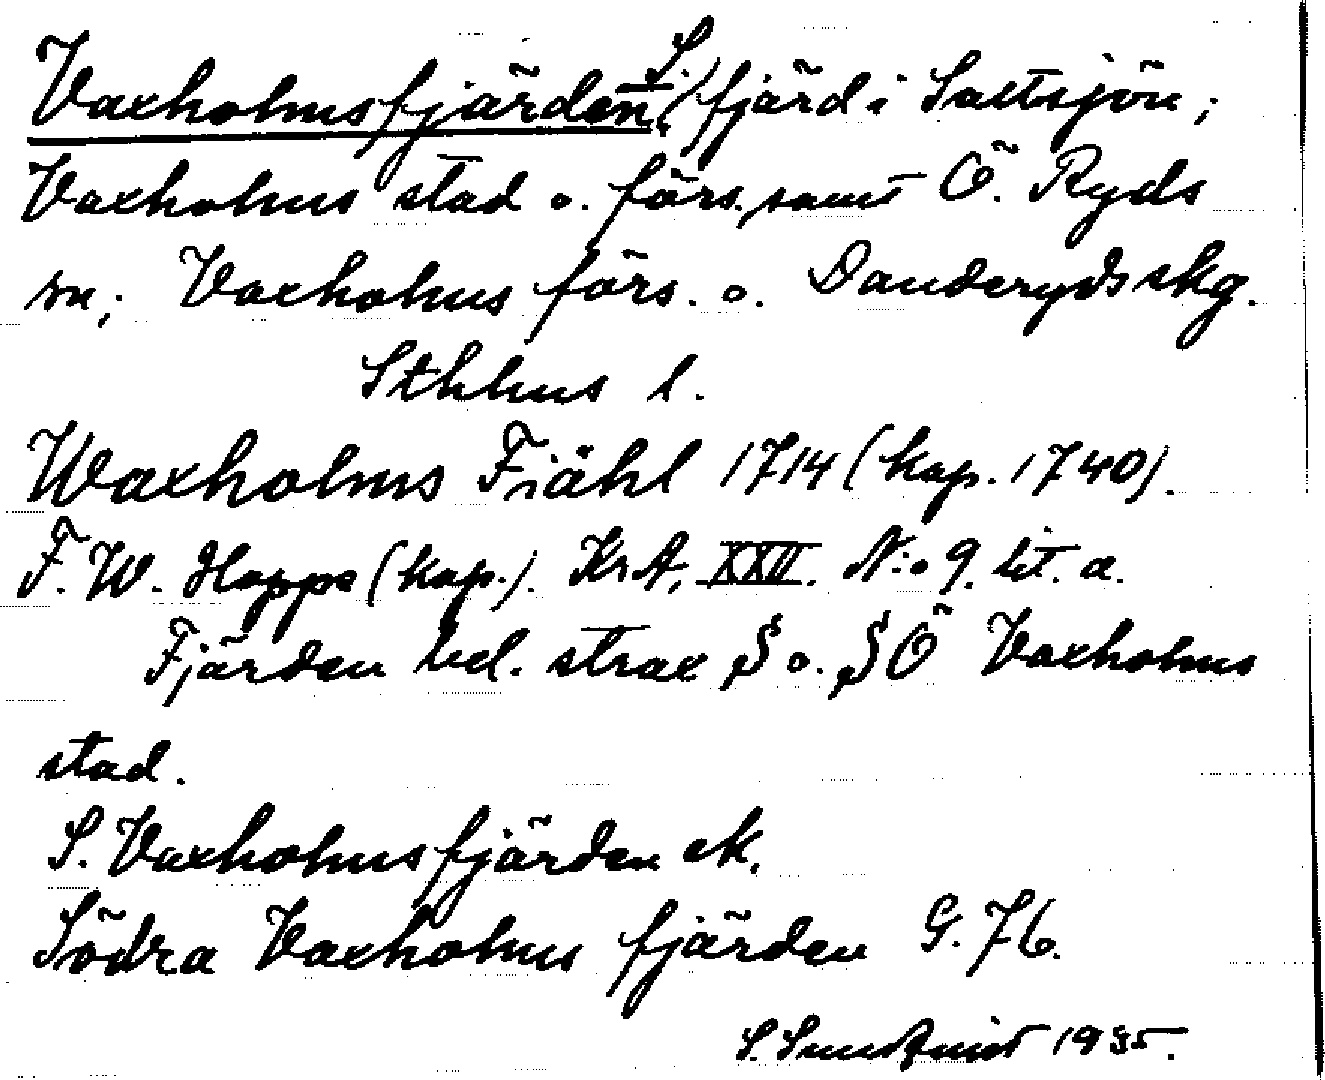 Vaxholmsfjärden, S. / fjärd i Saltsjön;
Vaxholms stad o. förs. samt Ö. Ryds
sn; Vaxholms förs. o. Danderyds skg.
Sthlms l.
Waxholms Fiähl 1714 (kop. 1740).
F. W. Hoppe (kop.). KrA, XXII. N:o 9. lit. a.
Fjärden bel. strax S o. SÖ Vaxholms
stad.
S. Vaxholmsfjärden ek.
Södra Vaxholms fjärden G. 76.
S. Sundquist 1935.